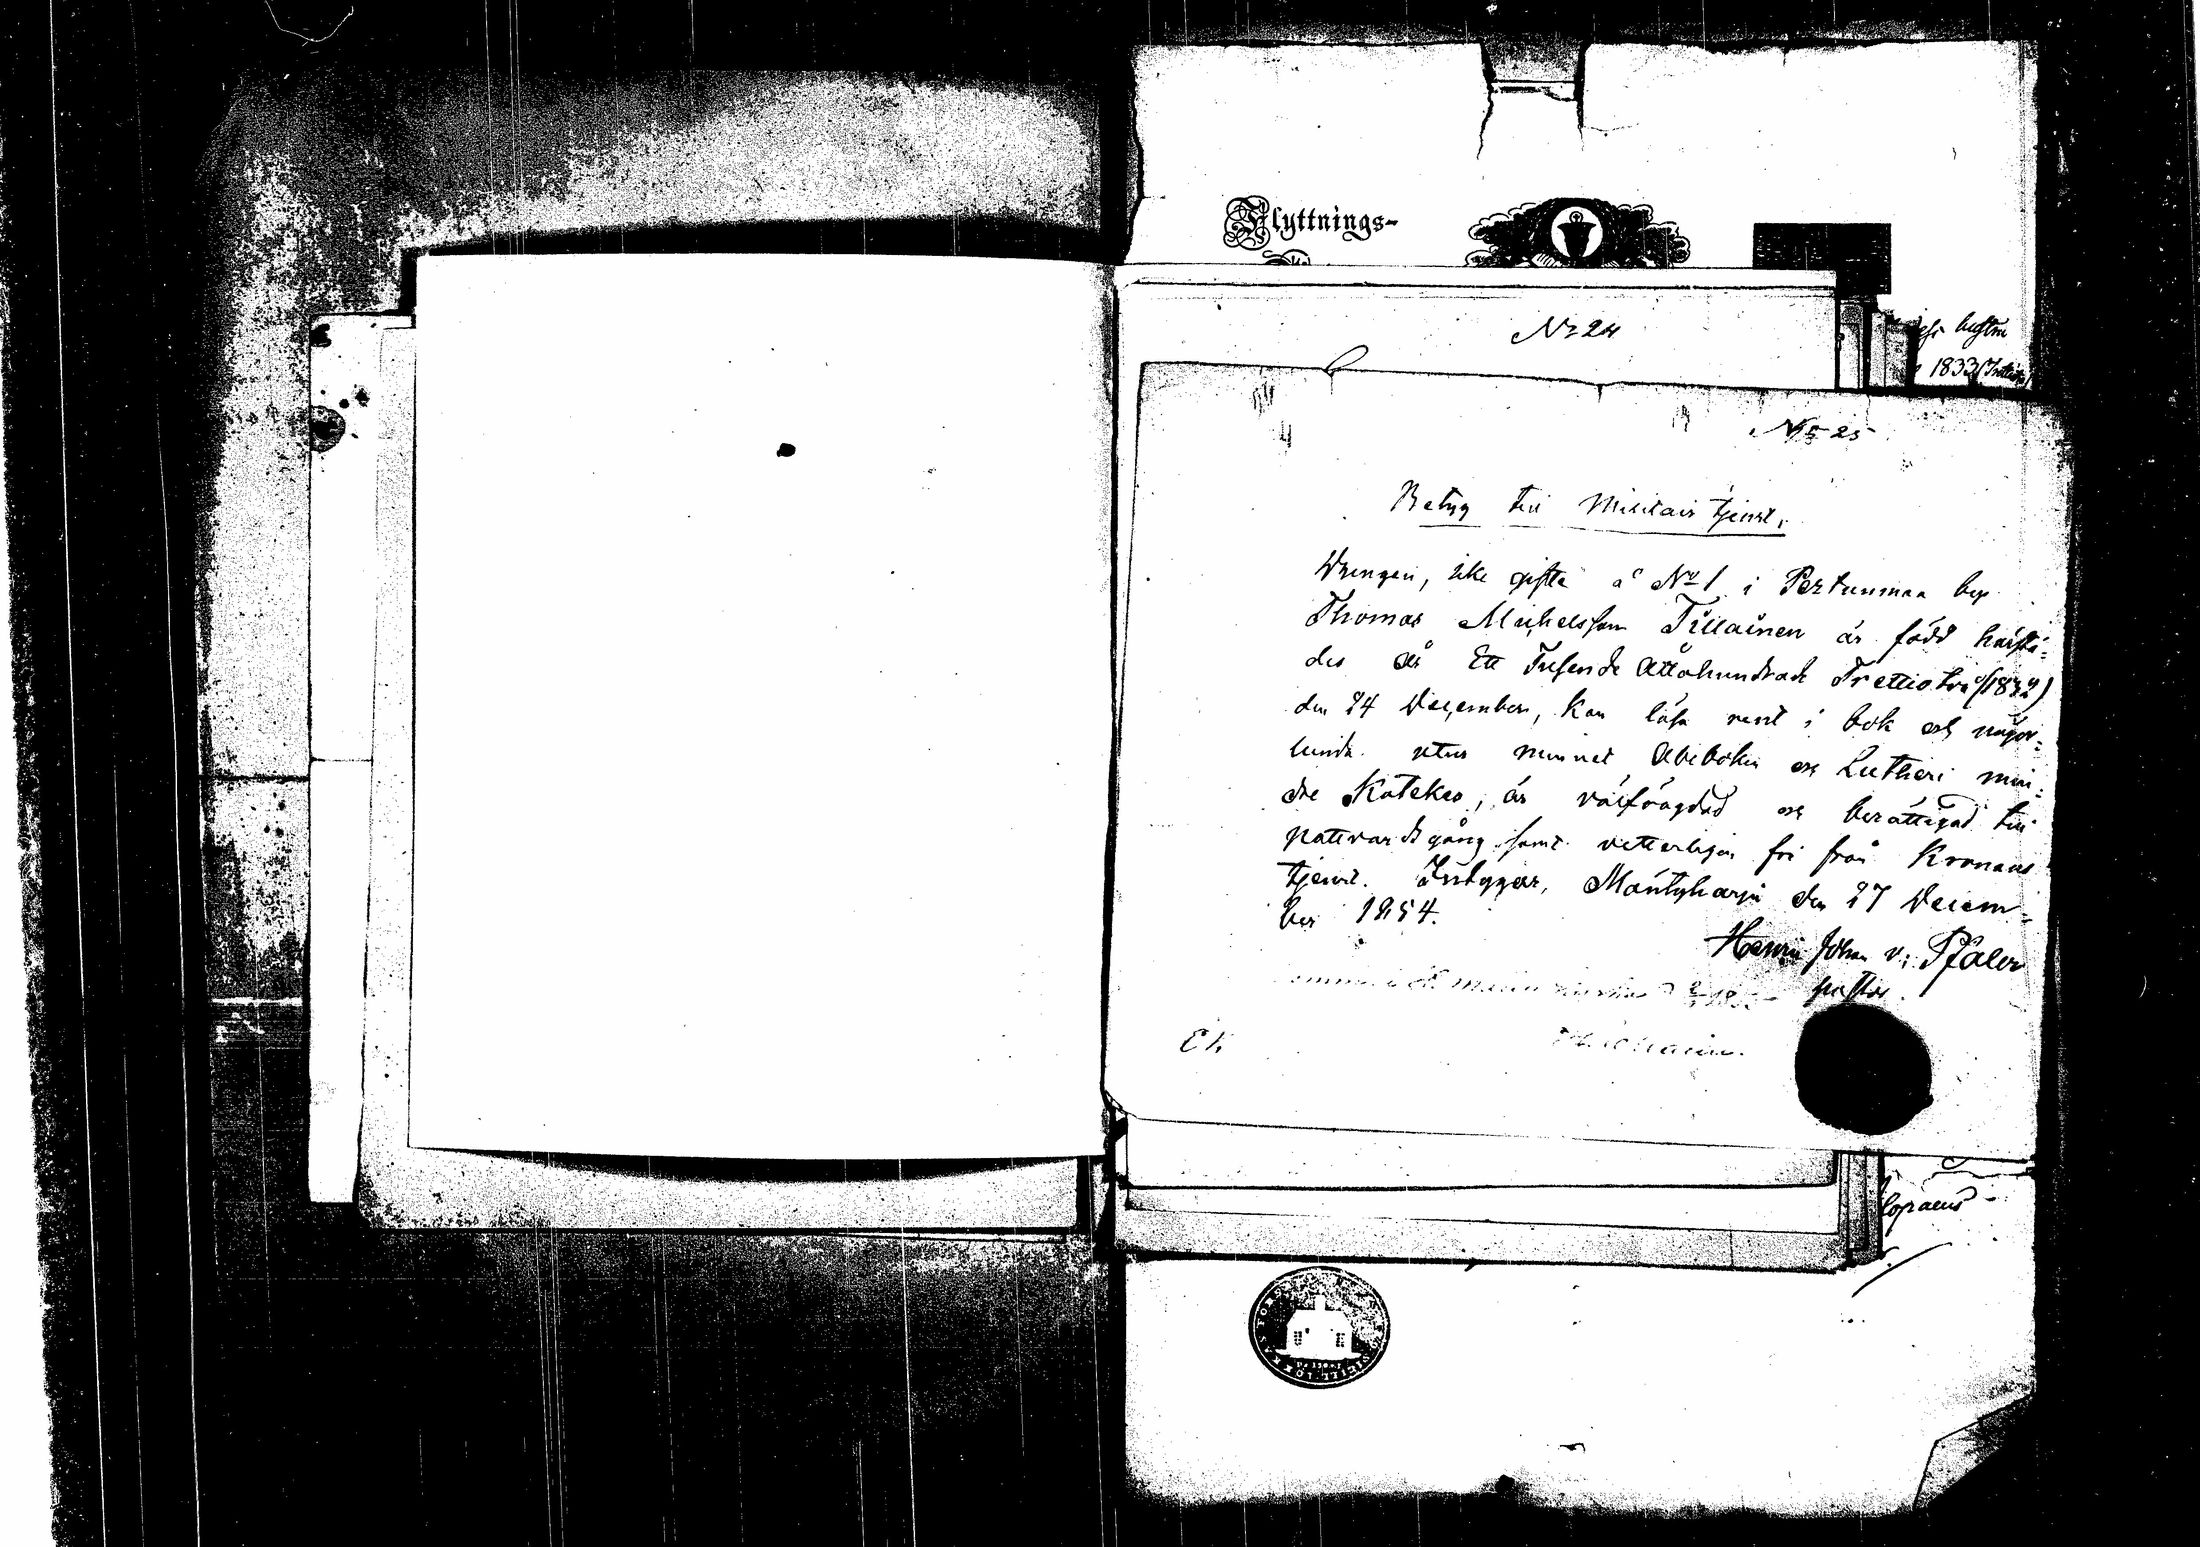 Flyttnings-
No 24
1833
No 25
Betyg till Militair tjenst.
Drengen, icke gifte å No 1 i Pertunmaa by
Thomas Michelsson Tillainen är född härstä-
des år Ett Tusende Åttahundrade Trettiotvå (1832)
den 24 December, kan läsa rent i bok och någor-
lunda utur minnet Abeboken och Lutheri min-
dre Katekes, är välfrägdad och berättigad till
nattvardsgång samt vetterligen fri från Kronans
tjenst. Intygar, Mäntyharju den 27 Decem-
ber 1854.
Henric Johan v. Pfaler
pastor.